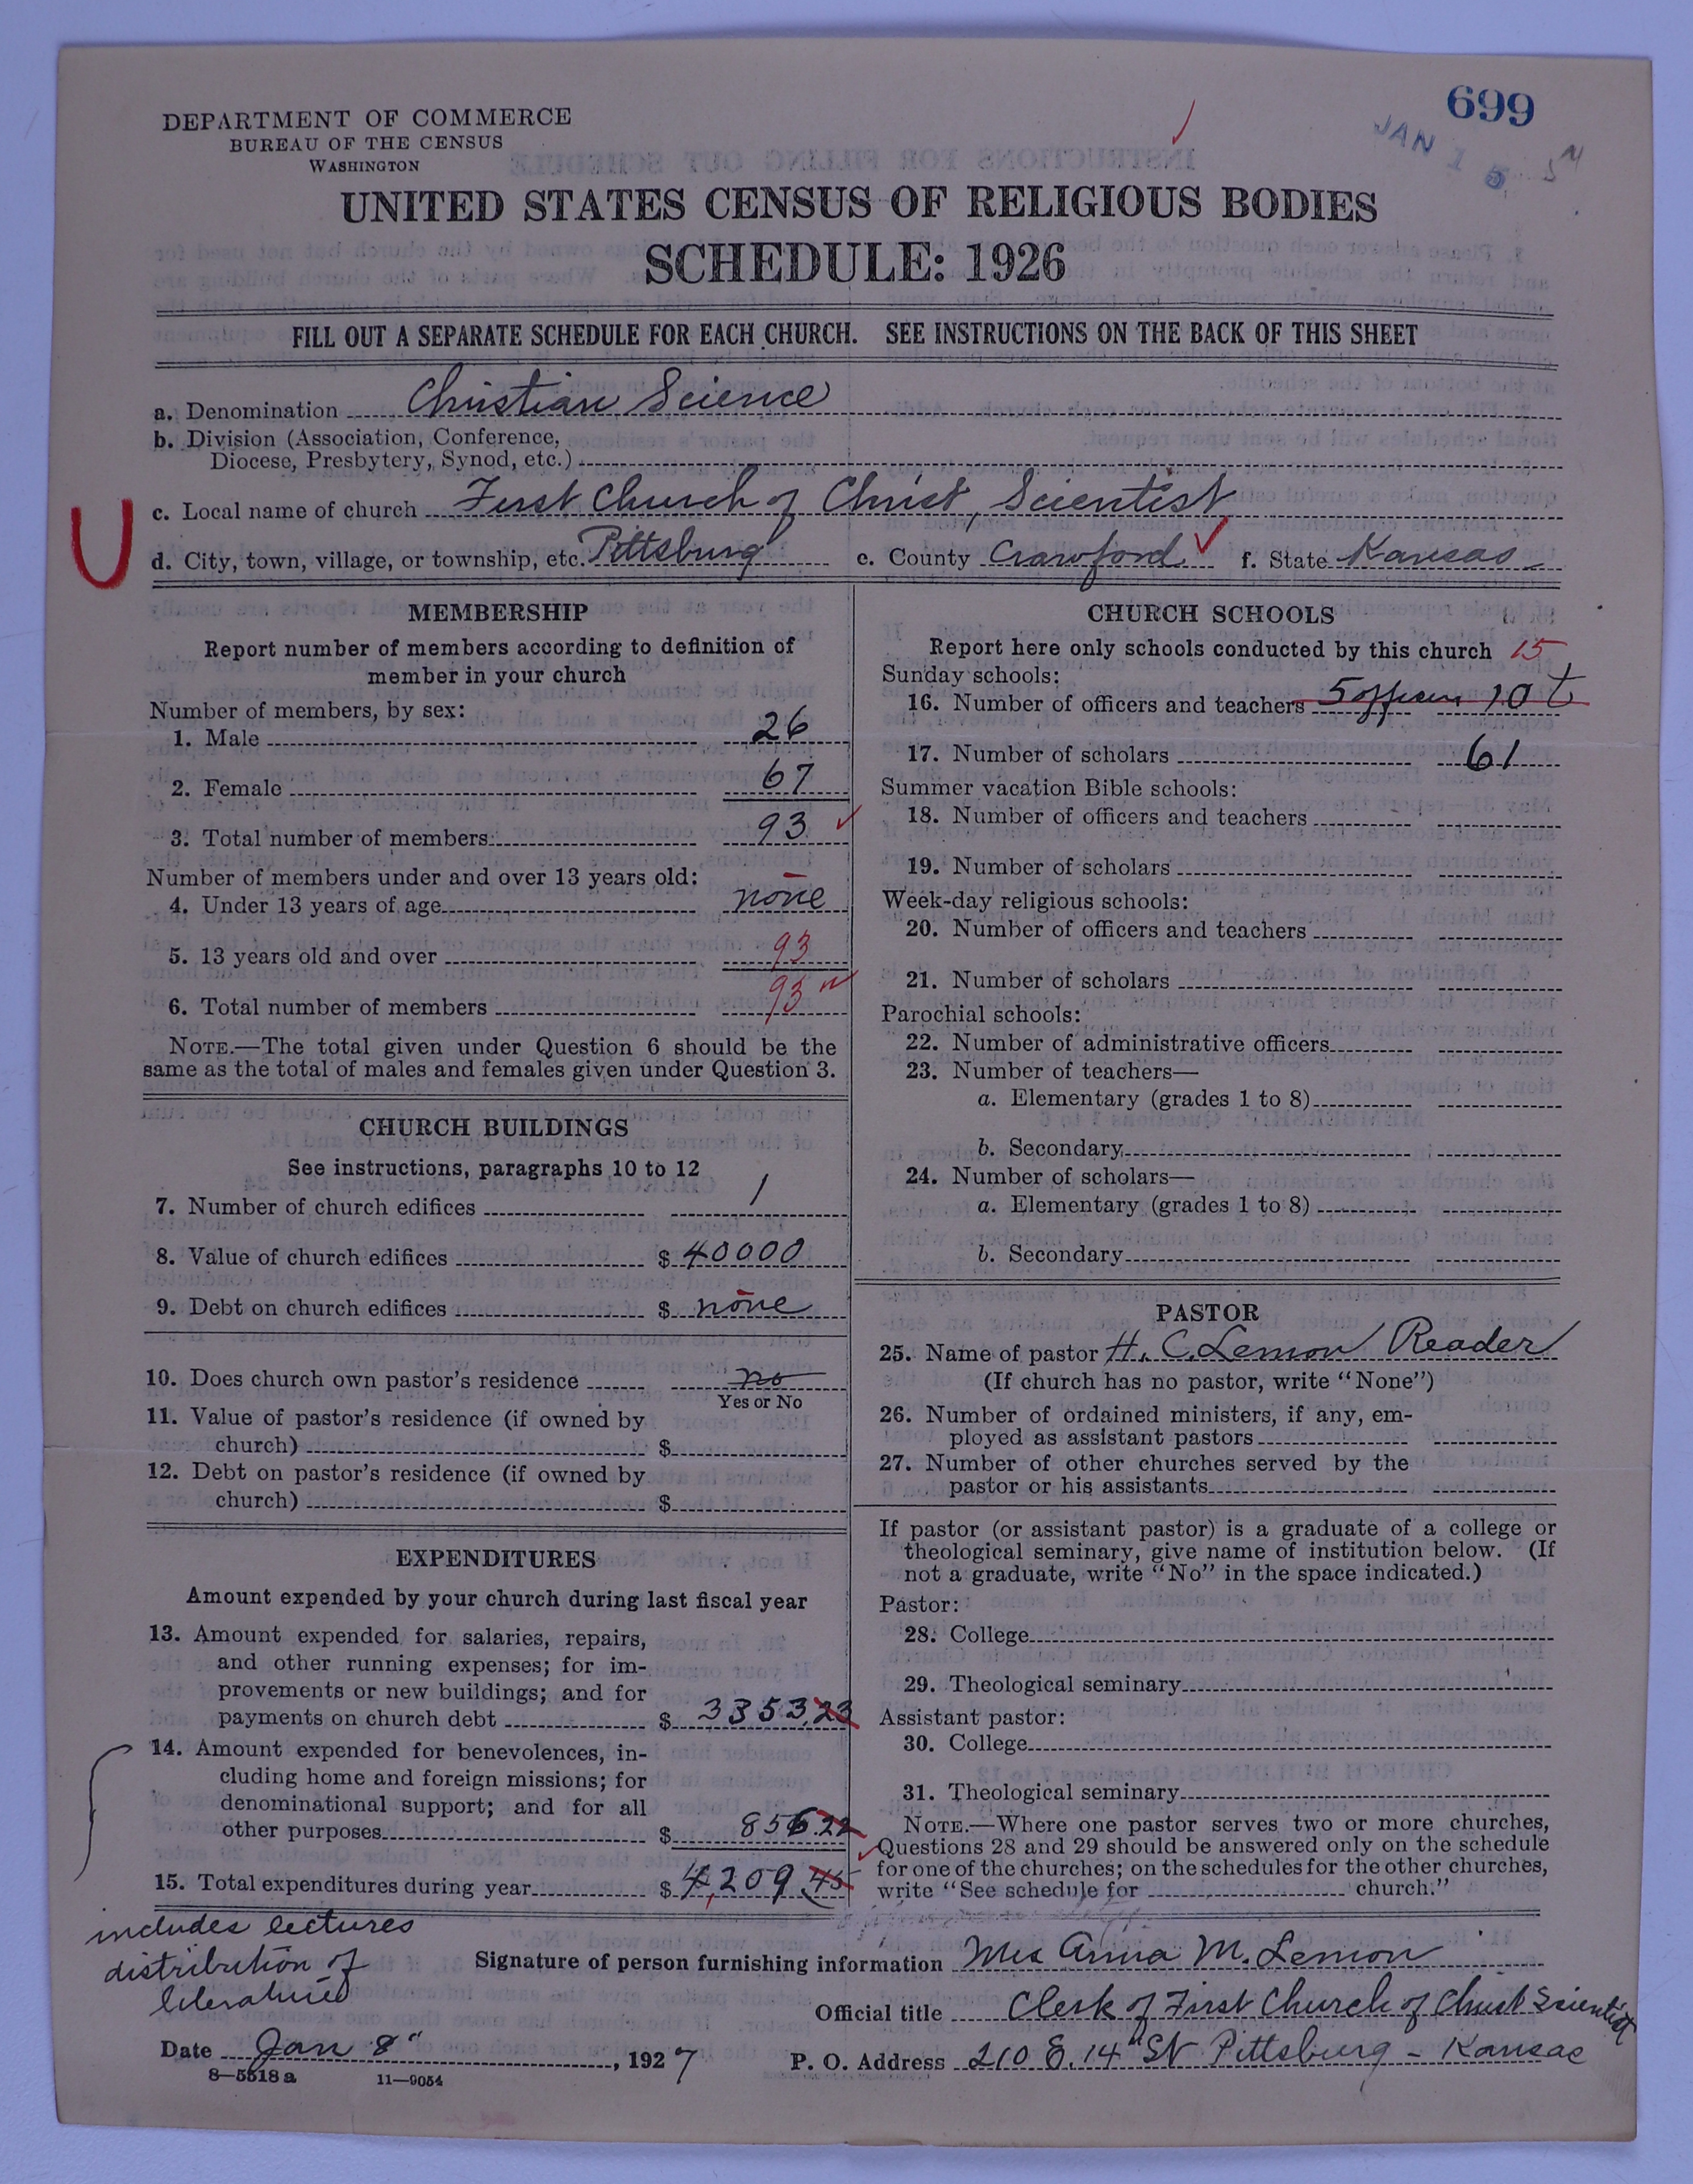 699
JAN 15
DEPARTMENT OF COMMERCE
BUREAU OF THE CENSUS
WASHINGTON
UNITED STATES CENSUS OF RELIGIOUS BODIES
SCHEDULE: 1926
FILL OUT A SEPARATE SCHEDULE FOR EACH CHURCH. SEE INSTRUCTIONS ON THE BACK OF THIS SHEET
a. Denomination Christian Science
b. Division (Association, Conference,
Diocese, Presbytery, Synod, etc.)
U
c. Local name of church First Church of Christ, Scientist
d. City, town, village, or township, etc. Pittsburg e. County Crawford f. State Kansas
MEMBERSHIP
Report number of members according to definition of
member in your church
Number of members, by sex:
1. Male 26
2. Female 67
3. Total number of members 93
Number of members under and over 13 years old:
4. Under 13 years of age none
5. 13 years old and over 93
6. Total number of members 93
NOTE.—The total given under Question 6 should be the
same as the total of males and females given under Question 3.
CHURCH BUILDINGS
See instructions, paragraphs 10 to 12
7. Number of church edifices 1
8. Value of church edifices $ 40000
9. Debt on church edifices $ none
10. Does church own pastor's residence no
Yes or No
11. Value of pastor's residence (if owned by
church) $
12. Debt on pastor's residence (if owned by
church) $
EXPENDITURES
Amount expended by your church during last fiscal year
13. Amount expended for salaries, repairs,
and other running expenses; for im-
provements or new buildings; and for
payments on church debt $ 3353.23
14. Amount expended for benevolences, in-
cluding home and foreign missions; for
denominational support; and for all
other purposes $ 856.22
15. Total expenditures during year $ 4,209.45
includes lectures
distribution of
literature
CHURCH SCHOOLS
Report here only schools conducted by this church 15
Sunday schools:
16. Number of officers and teachers 5 officers 10 t
17. Number of scholars 61
Summer vacation Bible schools:
18. Number of officers and teachers
19. Number of scholars
Week-day religious schools:
20. Number of officers and teachers
21. Number of scholars
Parochial schools:
22. Number of administrative officers
23. Number of teachers—
a. Elementary (grades 1 to 8)
b. Secondary
24. Number of scholars—
a. Elementary (grades 1 to 8)
b. Secondary
PASTOR
25. Name of pastor H. C. Lemon Reader
(If church has no pastor, write "None")
26. Number of ordained ministers, if any, em-
ployed as assistant pastors
27. Number of other churches served by the
pastor or his assistants
If pastor (or assistant pastor) is a graduate of a college or
theological seminary, give name of institution below. (If
not a graduate, write "No" in the space indicated.)
Pastor:
28. College
29. Theological seminary
Assistant pastor:
30. College
31. Theological seminary
NOTE.—Where one pastor serves two or more churches,
Questions 28 and 29 should be answered only on the schedule
for one of the churches; on the schedules for the other churches,
write "See schedule for church."
Signature of person furnishing information Mrs Anna M. Lemon
Official title Clerk of First Church of Christ Scientist
Date Jan 8", 1927
P. O. Address 210 E. 14" St Pittsburg - Kansas
8—5518 a 11—9054